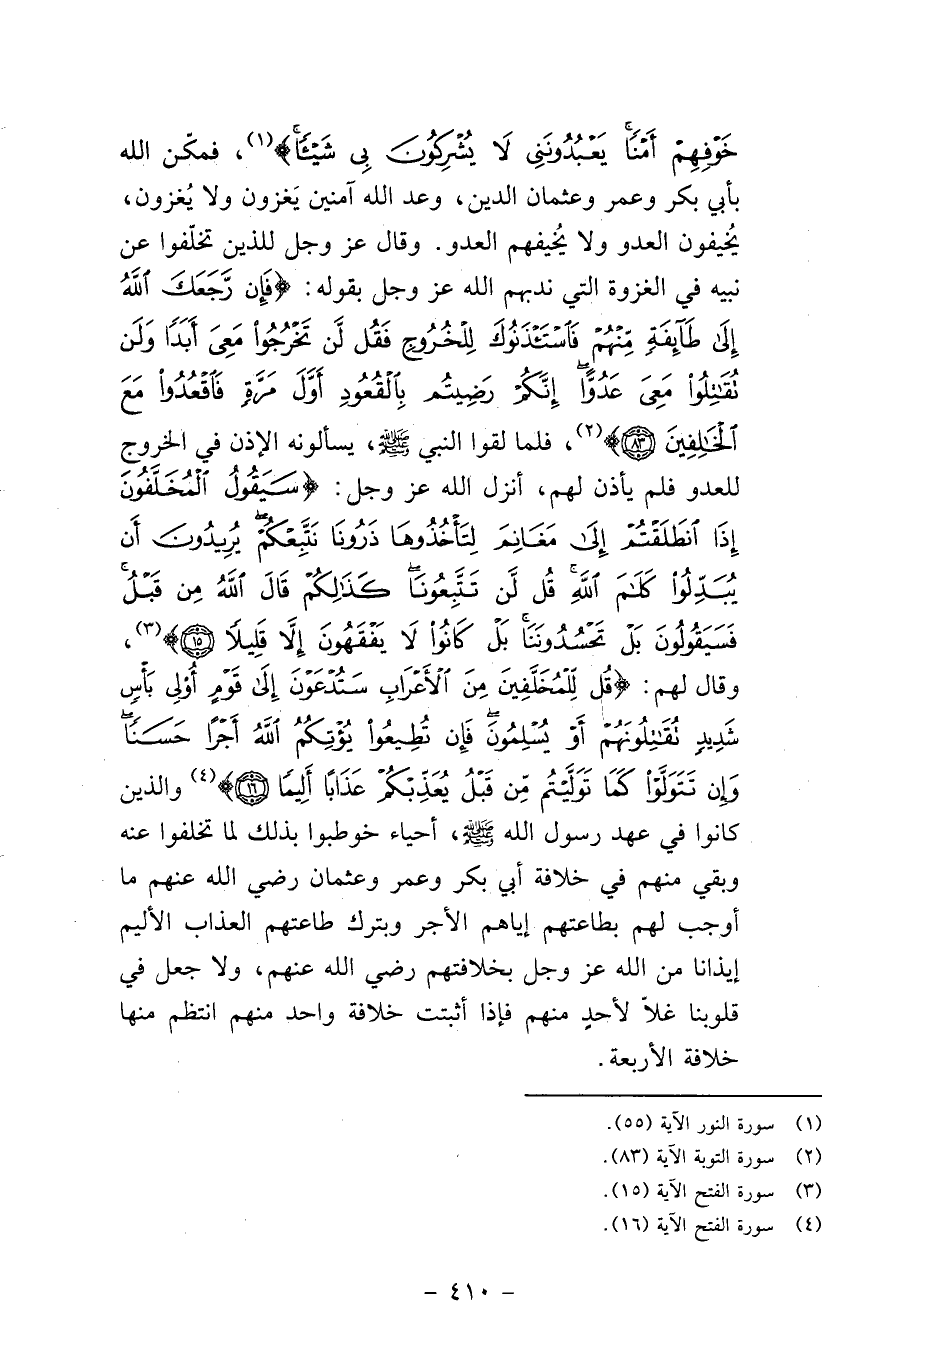 خَوْفِهِمْ أَمْنًا ۚ يَعْبُدُونَنِى لَا يُشْرِكُونَ بِى شَيْـًٔا ۚ﴾(١)، فمكّن الله
بأبي بكر وعمر وعثمان الدين، وعد الله آمنين يَغزون ولا يُغزون،
يُخيفون العدو ولا يُخيفهم العدو. وقال عز وجل للذين تخلّفوا عن
نبيه في الغزوة التي ندبهم الله عز وجل بقوله: ﴿فَإِن رَّجَعَكَ ٱللَّهُ
إِلَىٰ طَآئِفَةٍ مِّنْهُمْ فَٱسْتَـْٔذَنُوكَ لِلْخُرُوجِ فَقُل لَّن تَخْرُجُوا۟ مَعِىَ أَبَدًا وَلَن
تُقَـٰتِلُوا۟ مَعِىَ عَدُوًّا ۖ إِنَّكُمْ رَضِيتُم بِٱلْقُعُودِ أَوَّلَ مَرَّةٍ فَٱقْعُدُوا۟ مَعَ
ٱلْخَـٰلِفِينَ ٨٣﴾(٢)، فلما لقوا النبي ﷺ، يسألونه الإذن في الخروج
للعدو فلم يأذن لهم، أنزل الله عز وجل: ﴿سَيَقُولُ ٱلْمُخَلَّفُونَ
إِذَا ٱنطَلَقْتُمْ إِلَىٰ مَغَانِمَ لِتَأْخُذُوهَا ذَرُونَا نَتَّبِعْكُمْ ۖ يُرِيدُونَ أَن
يُبَدِّلُوا۟ كَلَـٰمَ ٱللَّهِ ۚ قُل لَّن تَتَّبِعُونَا ۖ كَذَٰلِكُمْ قَالَ ٱللَّهُ مِن قَبْلُ ۖ
فَسَيَقُولُونَ بَلْ تَحْسُدُونَنَا ۚ بَلْ كَانُوا۟ لَا يَفْقَهُونَ إِلَّا قَلِيلًا ١٥﴾(٣)،
وقال لهم: ﴿قُل لِّلْمُخَلَّفِينَ مِنَ ٱلْأَعْرَابِ سَتُدْعَوْنَ إِلَىٰ قَوْمٍ أُو۟لِى بَأْسٍ
شَدِيدٍ تُقَـٰتِلُونَهُمْ أَوْ يُسْلِمُونَ ۖ فَإِن تُطِيعُوا۟ يُؤْتِكُمُ ٱللَّهُ أَجْرًا حَسَنًا ۖ
وَإِن تَتَوَلَّوْا۟ كَمَا تَوَلَّيْتُم مِّن قَبْلُ يُعَذِّبْكُمْ عَذَابًا أَلِيمًا ١٦﴾(٤) والذين
كانوا في عهد رسول الله ﷺ، أحياء خوطبوا بذلك لما تخلفوا عنه
وبقي منهم في خلافة أبي بكر وعمر وعثمان رضي الله عنهم ما
أوجب لهم بطاعتهم إياهم الأجر وبترك طاعتهم العذاب الأليم
إيذانا من الله عز وجل بخلافتهم رضي الله عنهم، ولا جعل في
قلوبنا غلاّ لأحدٍ منهم فإذا أثبتت خلافة واحد منهم انتظم منها
خلافة الأربعة.
(١) سورة النور الآية (٥٥).
(٢) سورة التوبة الآية (٨٣).
(٣) سورة الفتح الآية (١٥).
(٤) سورة الفتح الآية (١٦).
- ٤١٠ -